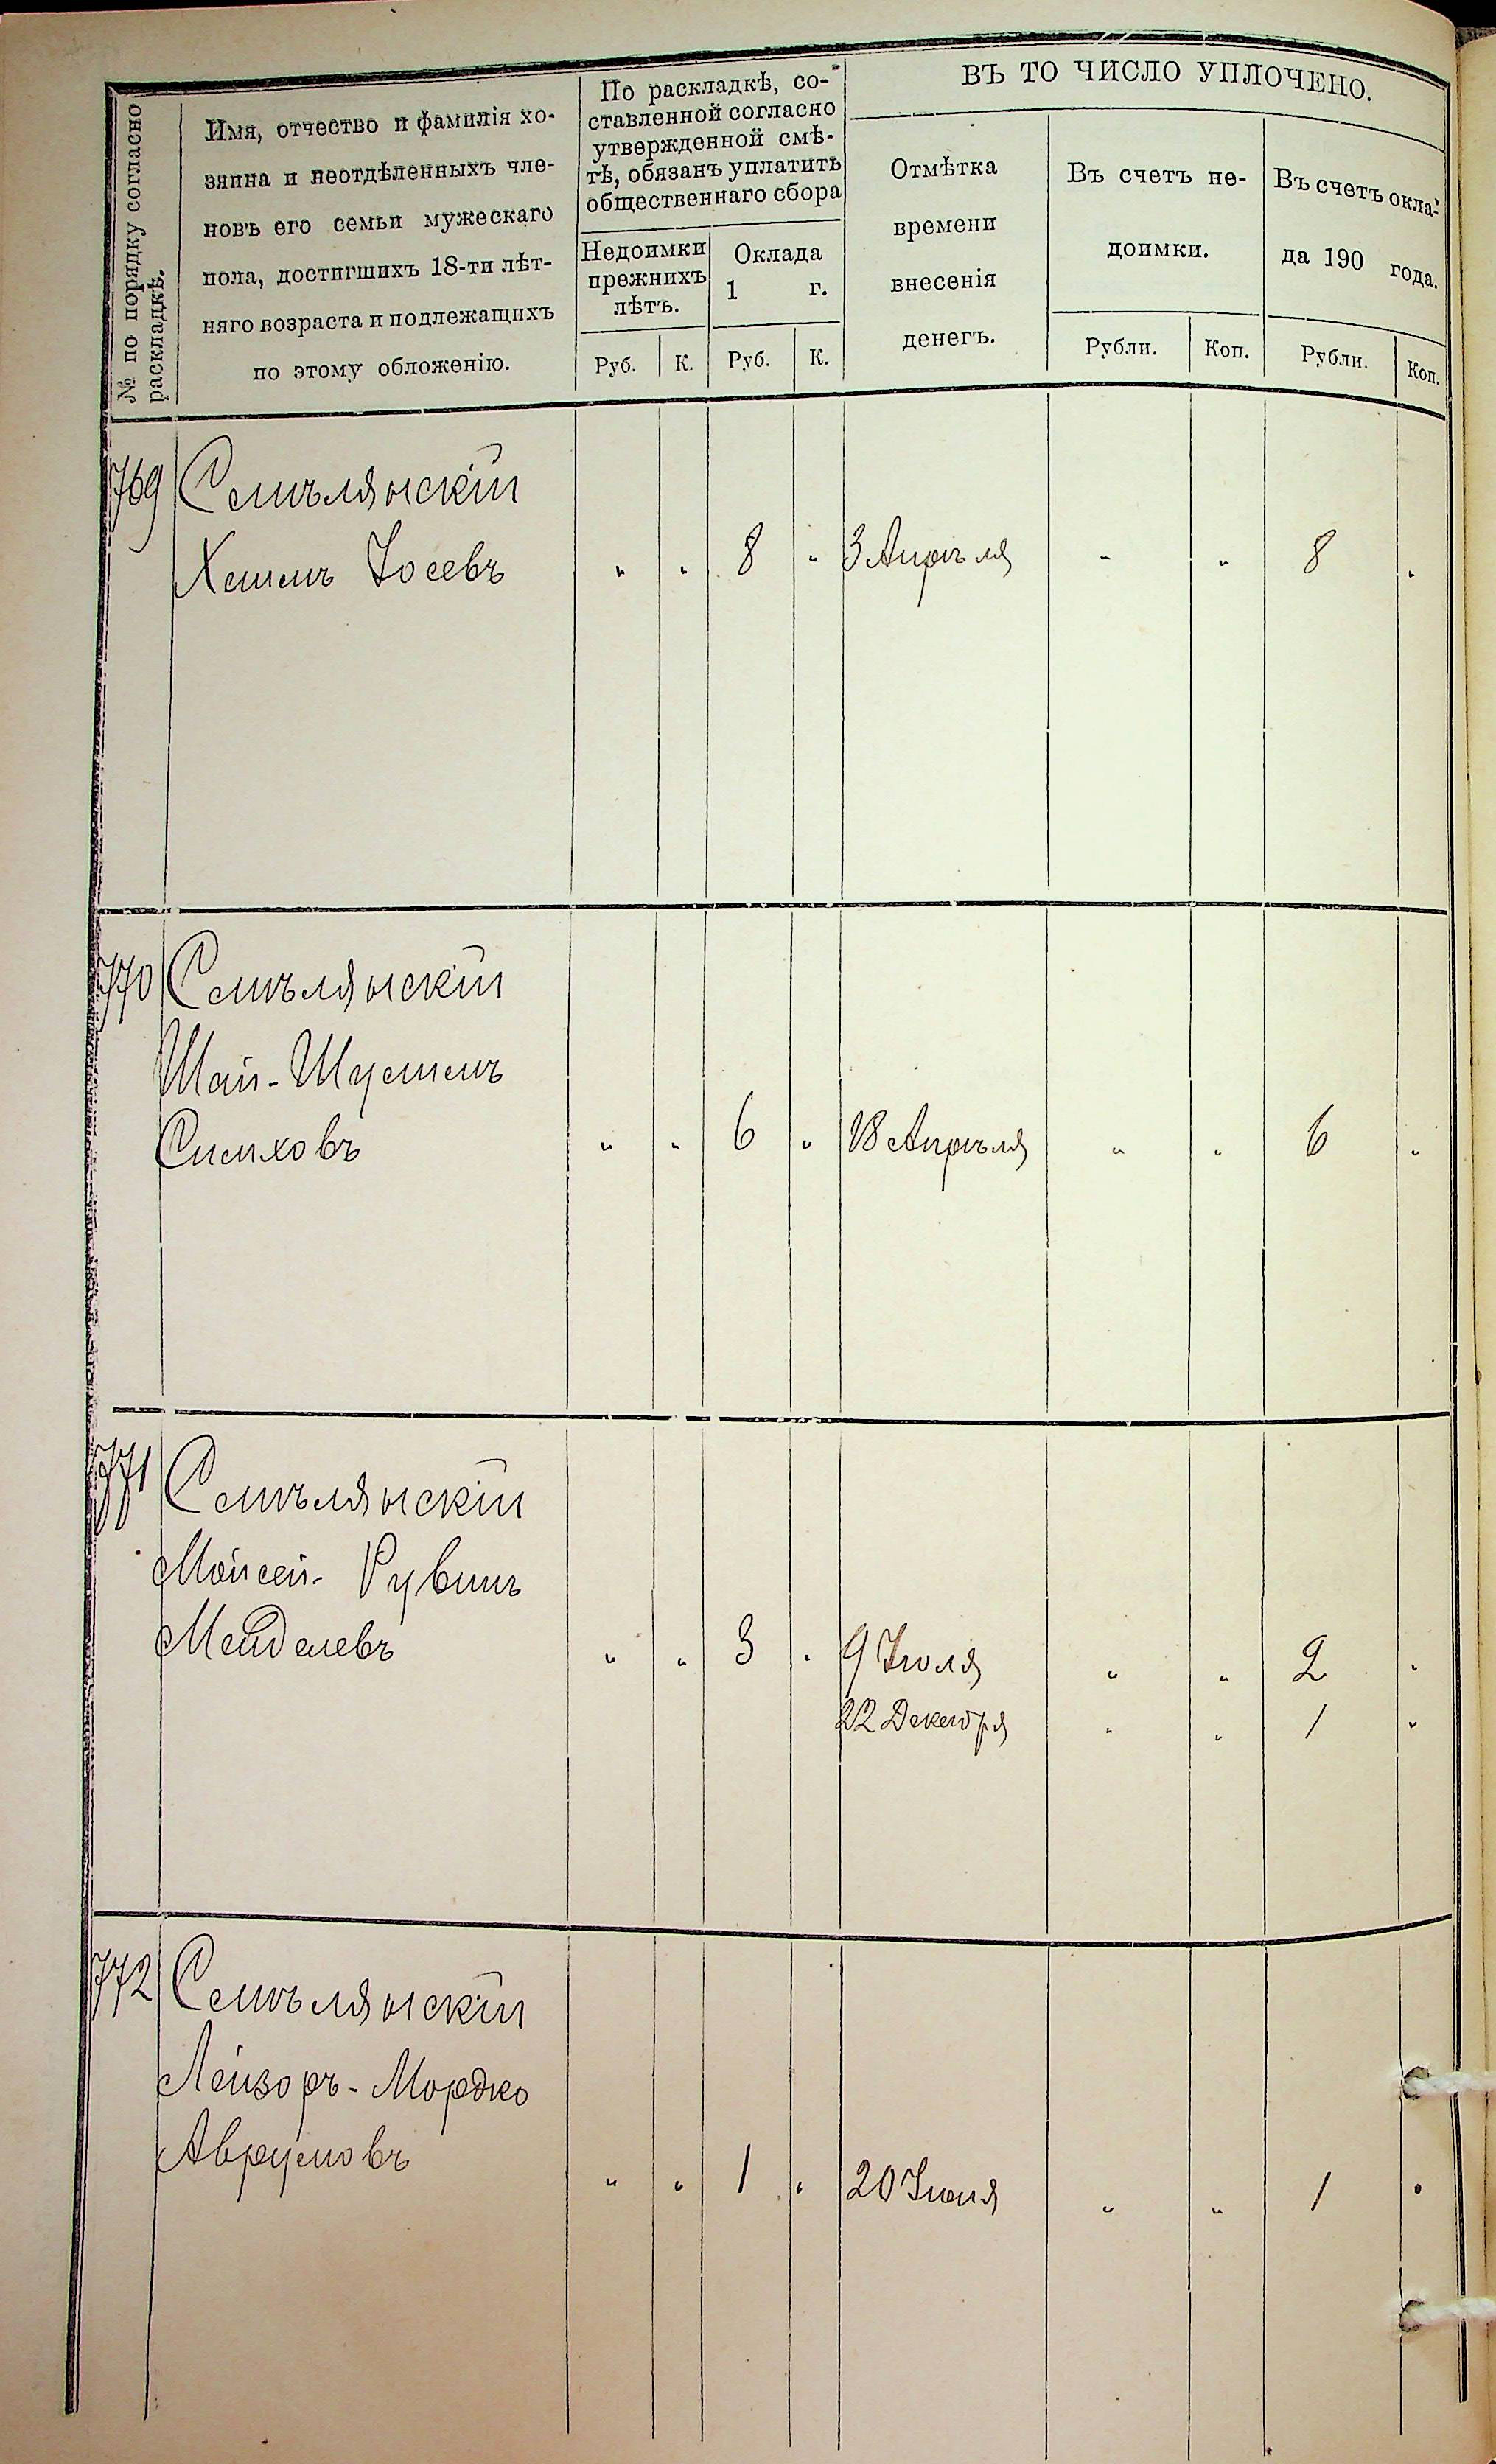 № по порядку согласно
раскладкѣ.
Имя, отчество и фамилія хо-
зяина и неотдѣленныхъ чле-
новъ его семьи мужескаго
пола, достигшихъ 18-ти лѣт-
няго возраста и подлежащихъ
по этому обложенію.
По раскладкѣ, со-
ставленной согласно
утвержденной смѣ-
тѣ, обязанъ уплатить
общественнаго сбора
Недоимки
прежнихъ
лѣтъ.
Оклада
1 г.
Руб. К. Руб. К.
ВЪ ТО ЧИСЛО УПЛОЧЕНО.
Отмѣтка
времени
внесенія
денегъ.
Въ счетъ не-
доимки.
Рубли. Коп.
Въ счетъ окла-
да 190 года.
Рубли. Коп.
769 Смѣлянскій
Іосевъ " " 8 " 3 Апрѣля " " 8 "
770 Смѣлянскій
Шай-
Симховъ " " 6 " 18 Апрѣля " " 6 "
771 Смѣлянскій
Мойсей-Рувинъ
Менделевъ " " 3 " 9 Іюля " " 2 "
22 Декабря " " 1 "
772 Смѣлянскій
Лейзоръ-Мордко
Аврумовъ " " 1 " 20 " " 1 "